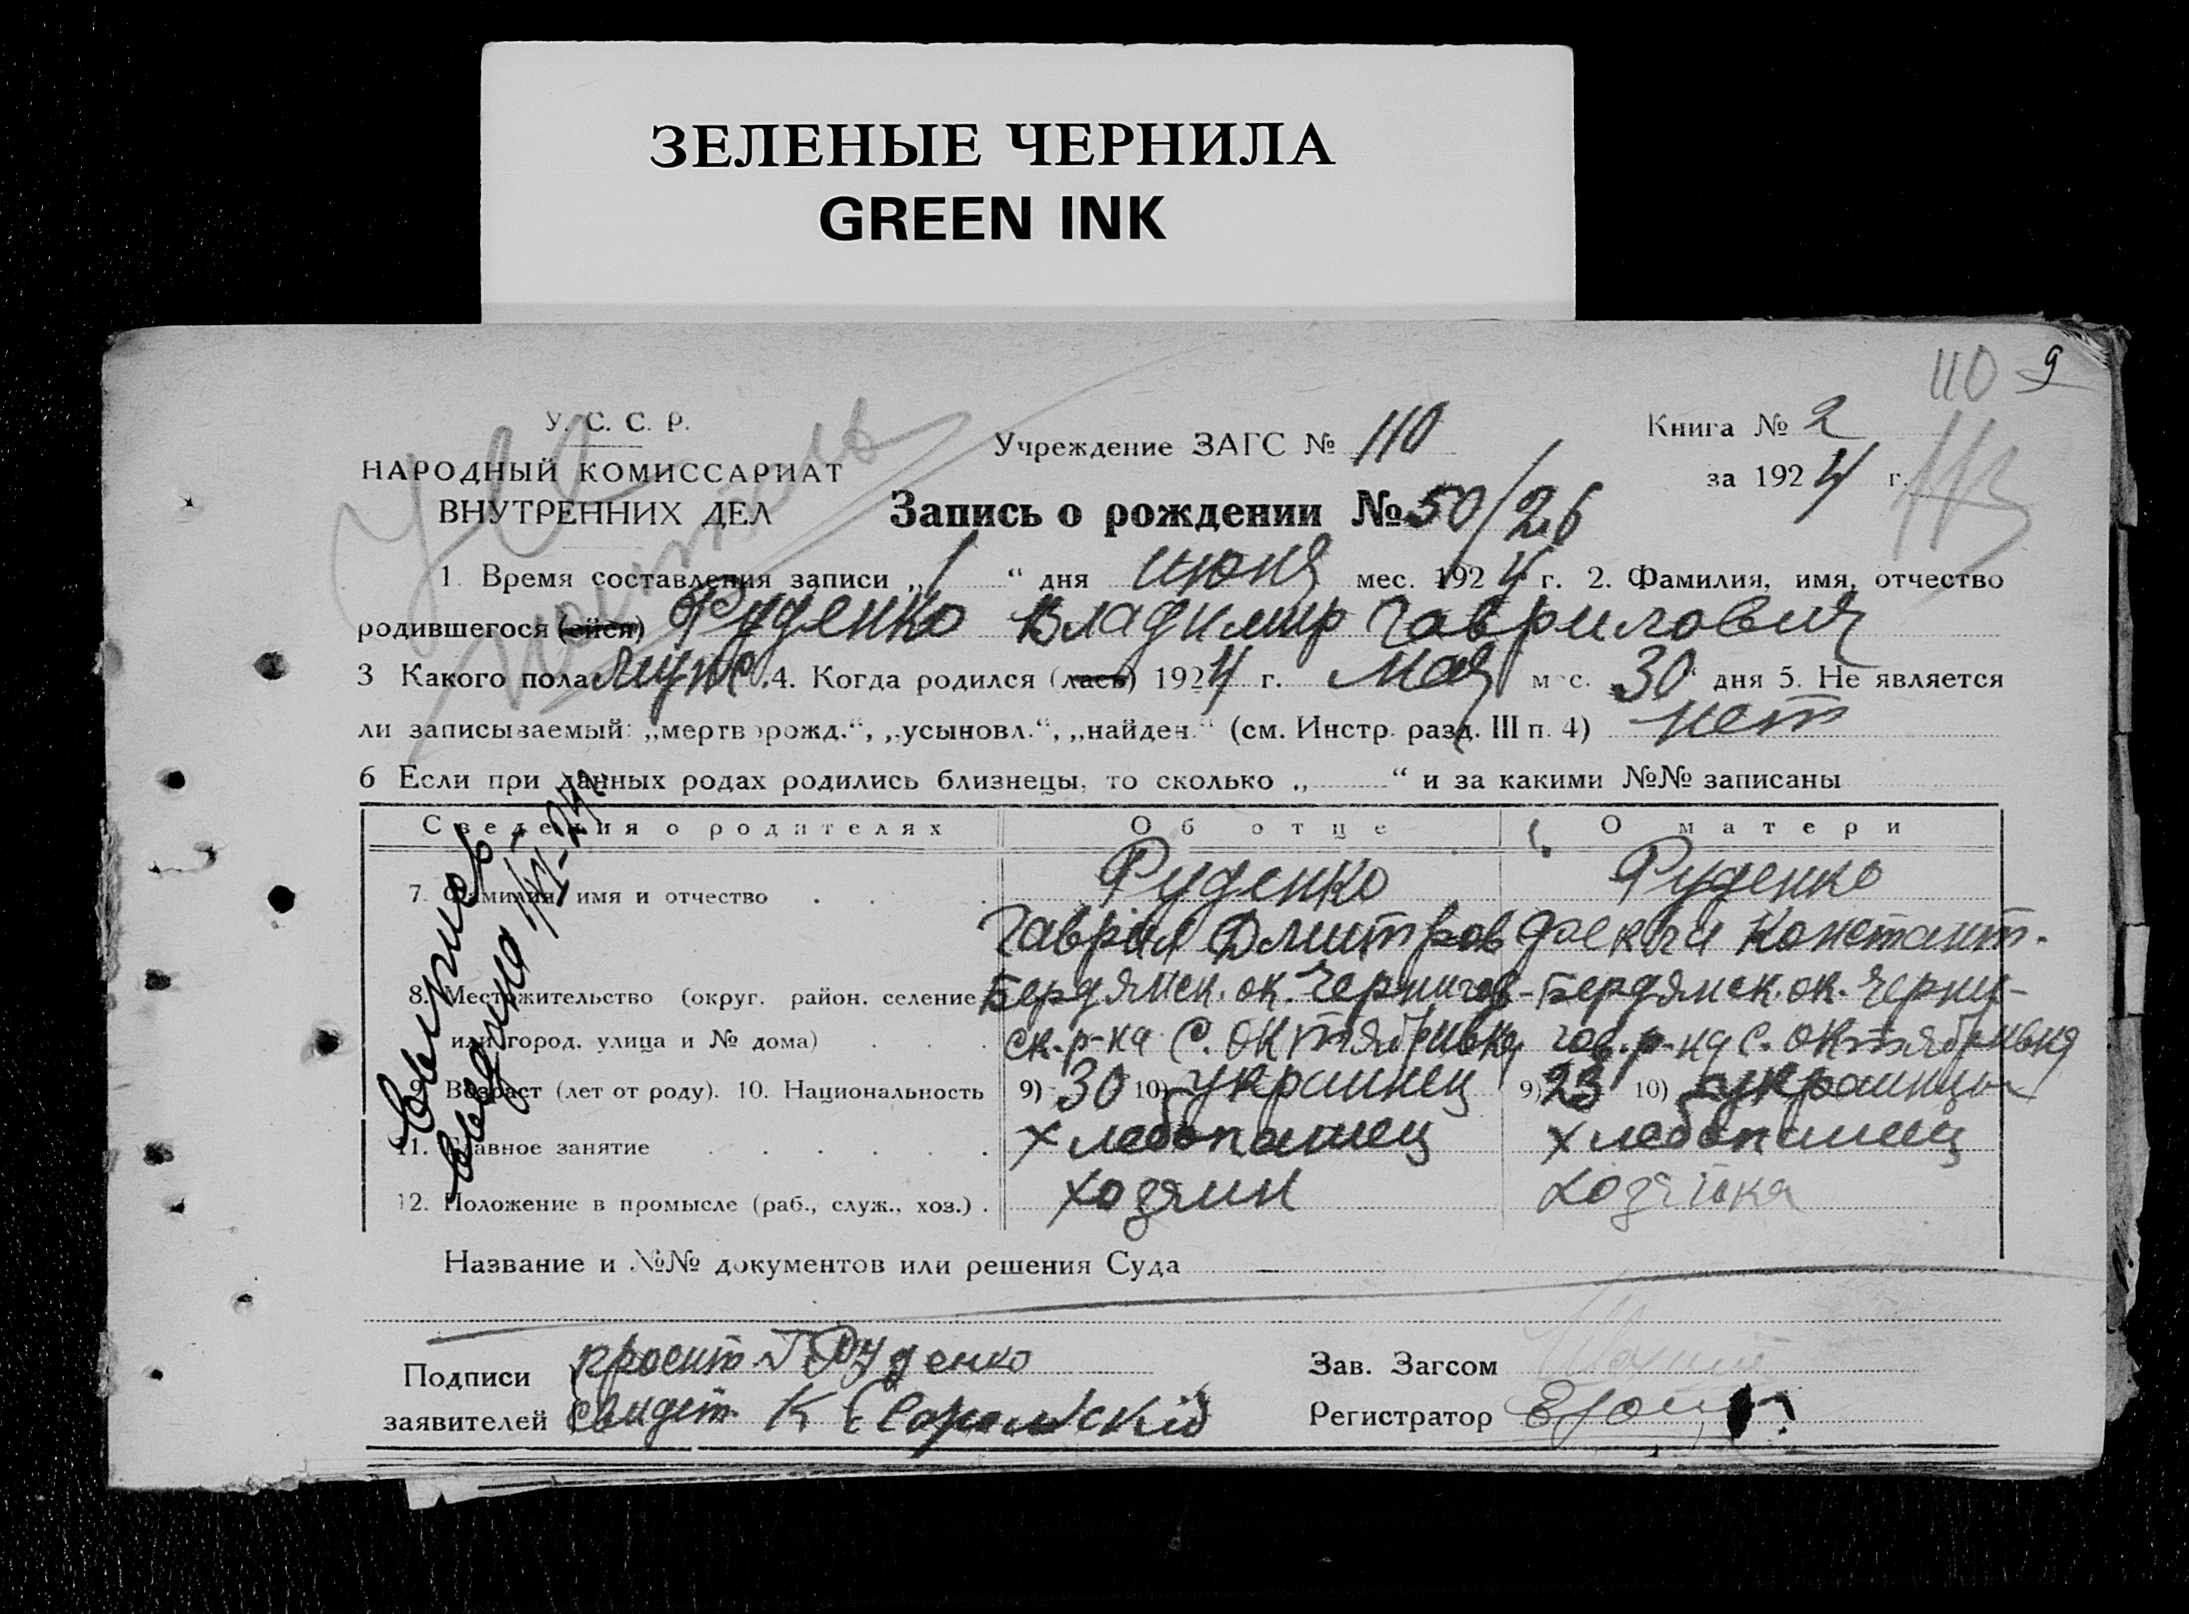 ЗЕЛЕНЫЕ ЧЕРНИЛА
GREEN INK
110 9
У. С. С. Р.
НАРОДНЫЙ КОМИССАРИАТ
ВНУТРЕННИХ ДЕЛ
Учреждение ЗАГС № 110
Книга № 2
за 1924 г.
113
Запись о рождении № 50/26
1. Время составления записи „1“ дня июня мес. 1924 г. 2. Фамилия, имя, отчество
родившегося (ейся) Руденко Владимир Гаврилович
3 Какого пола муж. 4. Когда родился (лась) 1924 г. мая мес. 30 дня 5. Не является
ли записываемый: „мертворожд.“, „усыновл.“, „найден.“ (см. Инстр. разд. III п. 4) нет
6 Если при данных родах родились близнецы, то сколько „ “ и за какими №№ записаны
Сведения о родителях Об отце О матери
7. Фамилия, имя и отчество Руденко Руденко
Гаврил Дмитров Констант.
8. Местожительство (округ. район. селение Бердянск. ок. Чернигов- Бердянск. ок. Черни-
или город. улица и № дома) ск. р-на с. Октябривка гов. р-на с. Октябривка
Возраст (лет от роду). 10. Национальность 9) 30 10) украинец 9) 23 10) украинцы
11. Главное занятие хлебопашец хлебопашец
12. Положение в промысле (раб., служ., хоз.) хозяин хозяйка
Название и №№ документов или решения Суда
Подписи просит Г Руденко
заявителей свидет. К
Зав. Загсом
Регистратор